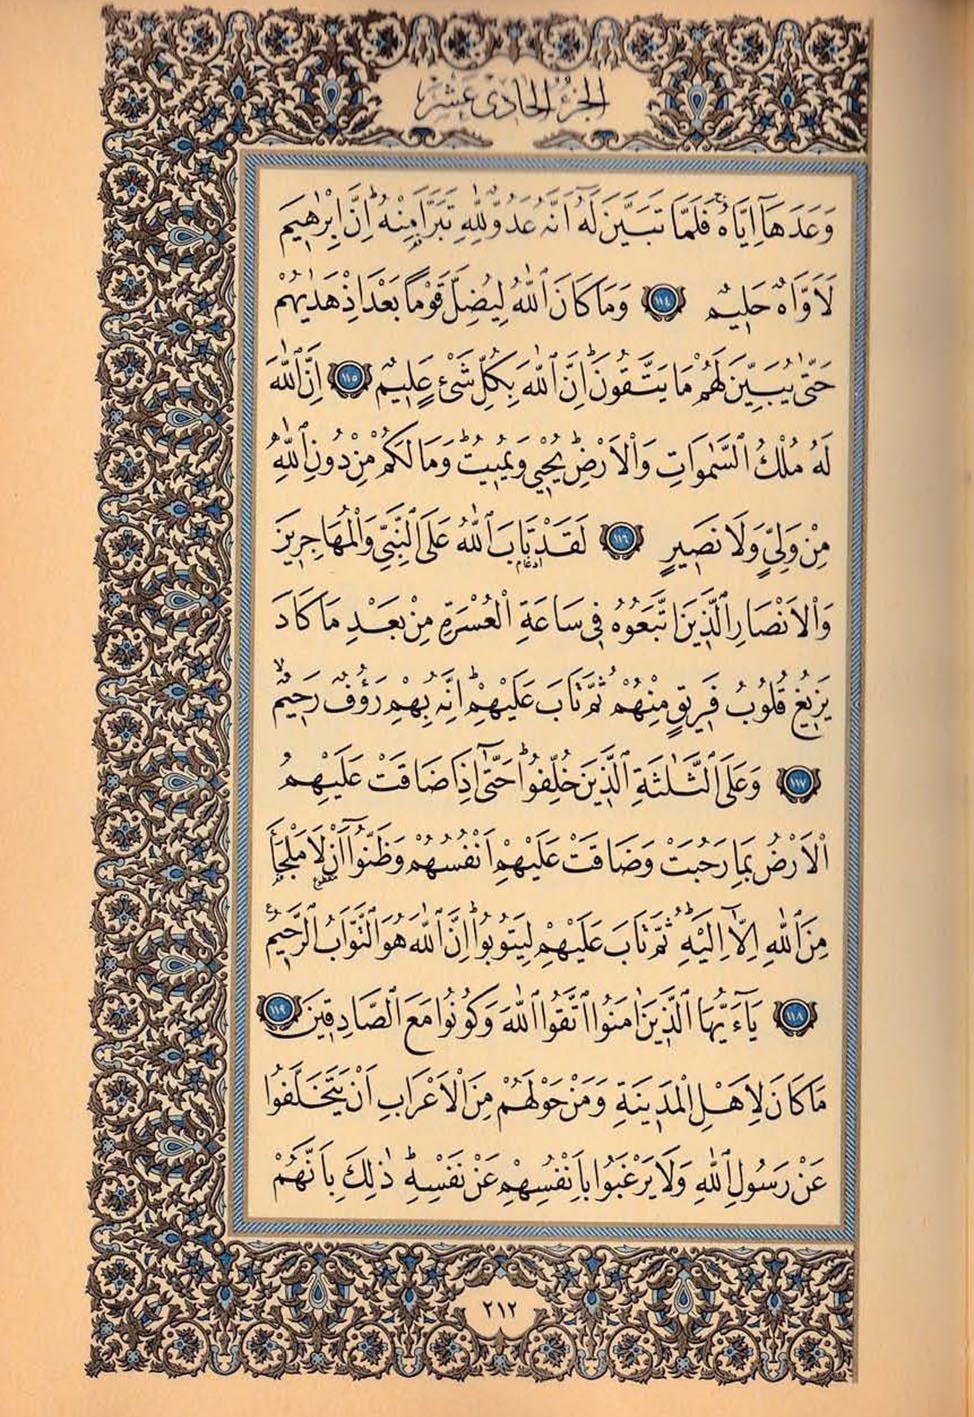 الجزء الحادى عشر
وَعَدَهَٓا اِيَّاهُۚ فَلَمَّا تَبَيَّنَ لَهُٓ اَنَّهُ عَدُوٌّ لِلّٰهِ تَبَرَّاَ مِنْهُۜ اِنَّ اِبْرٰهٖيمَ
لَاَوَّاهٌ حَلٖيمٌ ﴿١١٤﴾ وَمَا كَانَ اللّٰهُ لِيُضِلَّ قَوْمًا بَعْدَ اِذْ هَدٰيهُمْ
حَتّٰى يُبَيِّنَ لَهُمْ مَا يَتَّقُونَۜ اِنَّ اللّٰهَ بِكُلِّ شَىْءٍ عَلٖيمٌ ﴿١١٥﴾ اِنَّ اللّٰهَ
لَهُ مُلْكُ السَّمٰوَاتِ وَالْاَرْضِۜ يُحْيٖى وَيُمٖيتُۜ وَمَا لَكُمْ مِنْ دُونِ اللّٰهِ
مِنْ وَلِىٍّ وَلَا نَصٖيرٍ ﴿١١٦﴾ لَقَدْ تَابَ اللّٰهُ عَلَى النَّبِىِّ وَالْمُهَاجِرٖينَ
وَالْاَنْصَارِ الَّذٖينَ اتَّبَعُوهُ فٖى سَاعَةِ الْعُسْرَةِ مِنْ بَعْدِ مَا كَادَ
يَزٖيغُ قُلُوبُ فَرٖيقٍ مِنْهُمْ ثُمَّ تَابَ عَلَيْهِمْۜ اِنَّهُ بِهِمْ رَؤُفٌ رَحٖيمٌۙ
﴿١١٧﴾ وَعَلَى الثَّلٰثَةِ الَّذٖينَ خُلِّفُواۜ حَتّٰٓى اِذَا ضَاقَتْ عَلَيْهِمُ
الْاَرْضُ بِمَا رَحُبَتْ وَضَاقَتْ عَلَيْهِمْ اَنْفُسُهُمْ وَظَنُّٓوا اَنْ لَا مَلْجَاَ
مِنَ اللّٰهِ اِلَّٓا اِلَيْهِۜ ثُمَّ تَابَ عَلَيْهِمْ لِيَتُوبُواۜ اِنَّ اللّٰهَ هُوَ التَّوَّابُ الرَّحٖيمُ
﴿١١٨﴾ يَٓا اَيُّهَا الَّذٖينَ اٰمَنُوا اتَّقُوا اللّٰهَ وَكُونُوا مَعَ الصَّادِقٖينَ ﴿١١٩﴾
مَا كَانَ لِاَهْلِ الْمَدٖينَةِ وَمَنْ حَوْلَهُمْ مِنَ الْاَعْرَابِ اَنْ يَتَخَلَّفُوا
عَنْ رَسُولِ اللّٰهِ وَلَا يَرْغَبُوا بِاَنْفُسِهِمْ عَنْ نَفْسِهٖۜ ذٰلِكَ بِاَنَّهُمْ
٢١٢